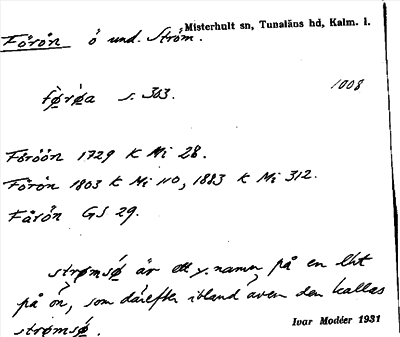 Misterhult sn, Tunaläns hd, Kalm. l.
Fårön ö und. Ström.
førøa s. 303. 1008
Fåröön 1729 K Mi 28.
Fårön 1803 K Mi 110, 1883 K Mi 312.
Fårön GS 29.
strømsø är ett y. namn på en
på ön, som därefter ibland även den kallas
strømsø.
Ivar Modéer 1931